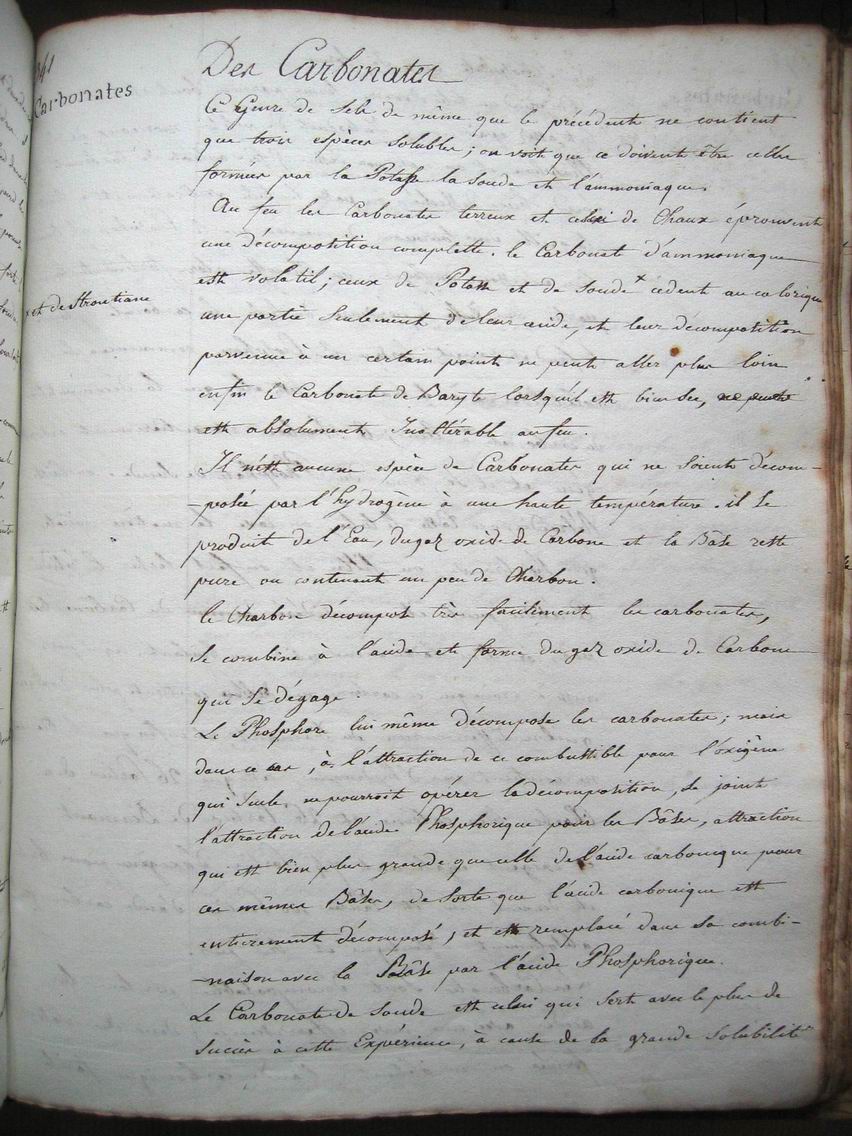 341
Carbonates
Des Carbonates
Ce Genre de sels de même que le précédent ne contient
que trois espèces solubles ; on voit que ce doivent être celles
formées par la Potasse la soude et l'ammoniaque.
Au feu les Carbonates terreux et celui de Chaux éprouvent
une décomposition complette. le Carbonate d'ammoniaque
est volatil ; ceux de Potasse et de soude x cèdent au calorique
x et de Strontiane
une partie seulement de leur acide, et leur décomposition
parvenue à un certain point ne peut aller plus loin
enfin le Carbonate de Baryte lorsqu'il est bien sec, ne peut
est absolument Inaltérable au feu.
Il n'est aucune espèce de Carbonates qui ne soient décom-
-posée par l'hydrogène à une haute température. il se
produit de l'Eau, du gaz oxide de Carbone et la Bâse reste
pure ou contenant un peu de Charbon.
le Charbon décompose très facilement les carbonates,
se combine à l'acide et forme du gaz oxide de Carbone
qui se dégage.
Le Phosphore lui même décompose les carbonates ; mais
dans ce cas, à l'attraction de ce combustible pour l'oxigène
qui seule ne pourroit opérer la décomposition, se joint
l'attraction de l'acide Phosphorique pour les Bâses, attraction
qui est bien plus grande que celle de l'acide carbonique pour
ces mêmes Bâses, de sorte que l'acide carbonique est
entierement décomposé, et est remplacé dans sa combi-
-naison avec la Bâse par l'acide Phosphorique.
Le Carbonate de soude est celui qui sert avec le plus de
succès à cette Expérience, à cause de la grande solubilité